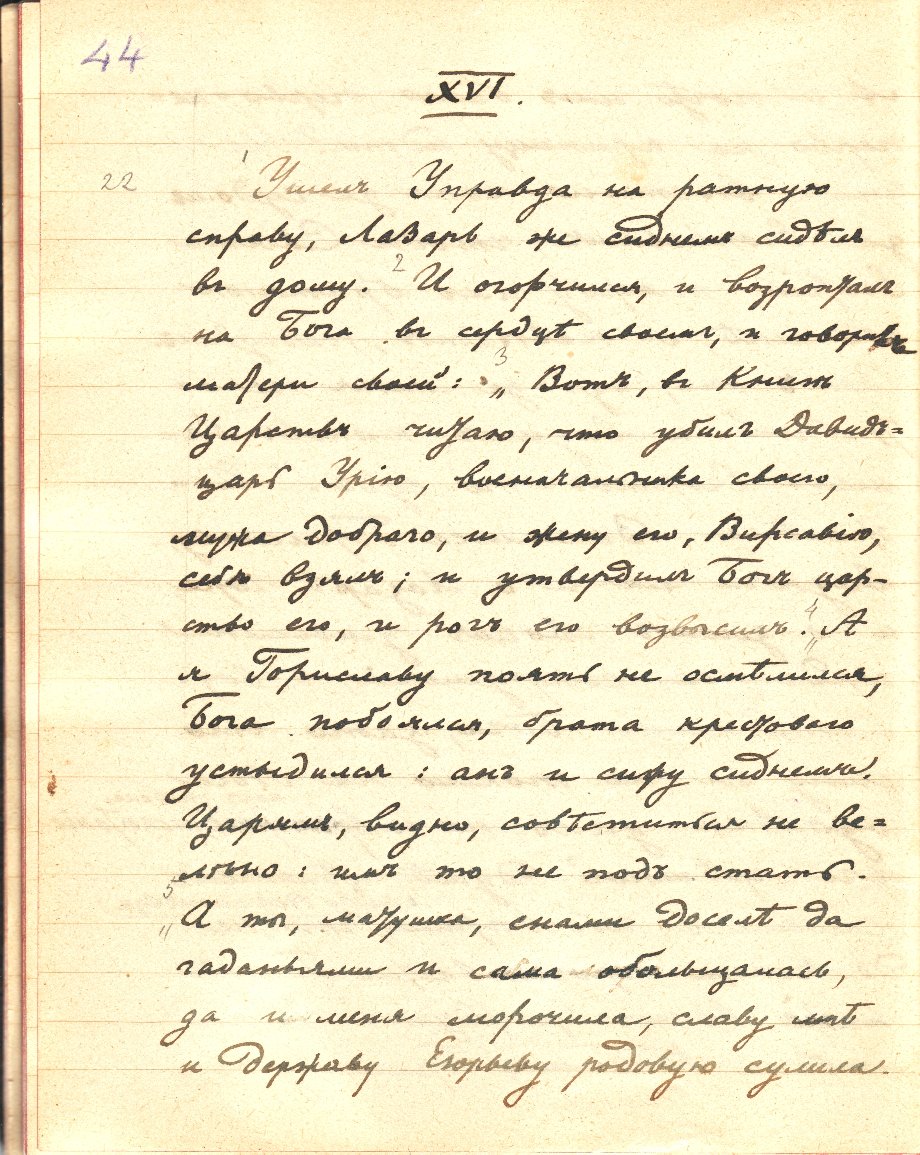 44
XVI.
22
1 Ушелъ Управда на ратную
справу, Лазарь же сиднемъ сидѣлъ
въ дому. 2 И огорчился, и возропталъ
на Бога въ сердцѣ своемъ, и говоритъ
матери своей: 3 „Вотъ, въ Книгѣ
Царствъ читаю, что убилъ Давидъ=
царь Урію, военачальника своего,
мужа добраго, и жену его, Вирсавію,
себѣ взялъ; и утвердилъ Богъ цар-
ство его, и рогъ его возвысилъ. 4 „А
я Гориславу поять не осмѣлился,
Бога побоялся, брата крестоваго
устыдился: анъ и сижу сиднемъ.
Царямъ, видно, совѣститься не ве=
лѣно: имъ то не подъ стать.
5 „А ты, матушка, снами доселѣ да
гаданьями и сама обольщалась,
да и меня морочила, славу мнѣ
и державу Егорьеву родовую сулила.